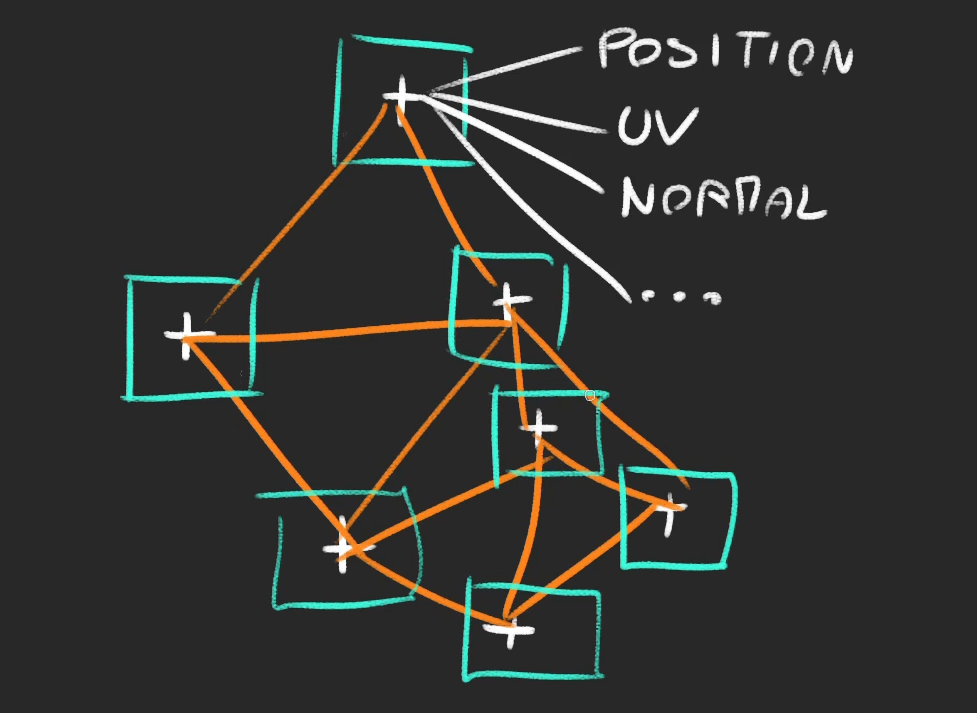 POSITION
UV
NORMAL
...